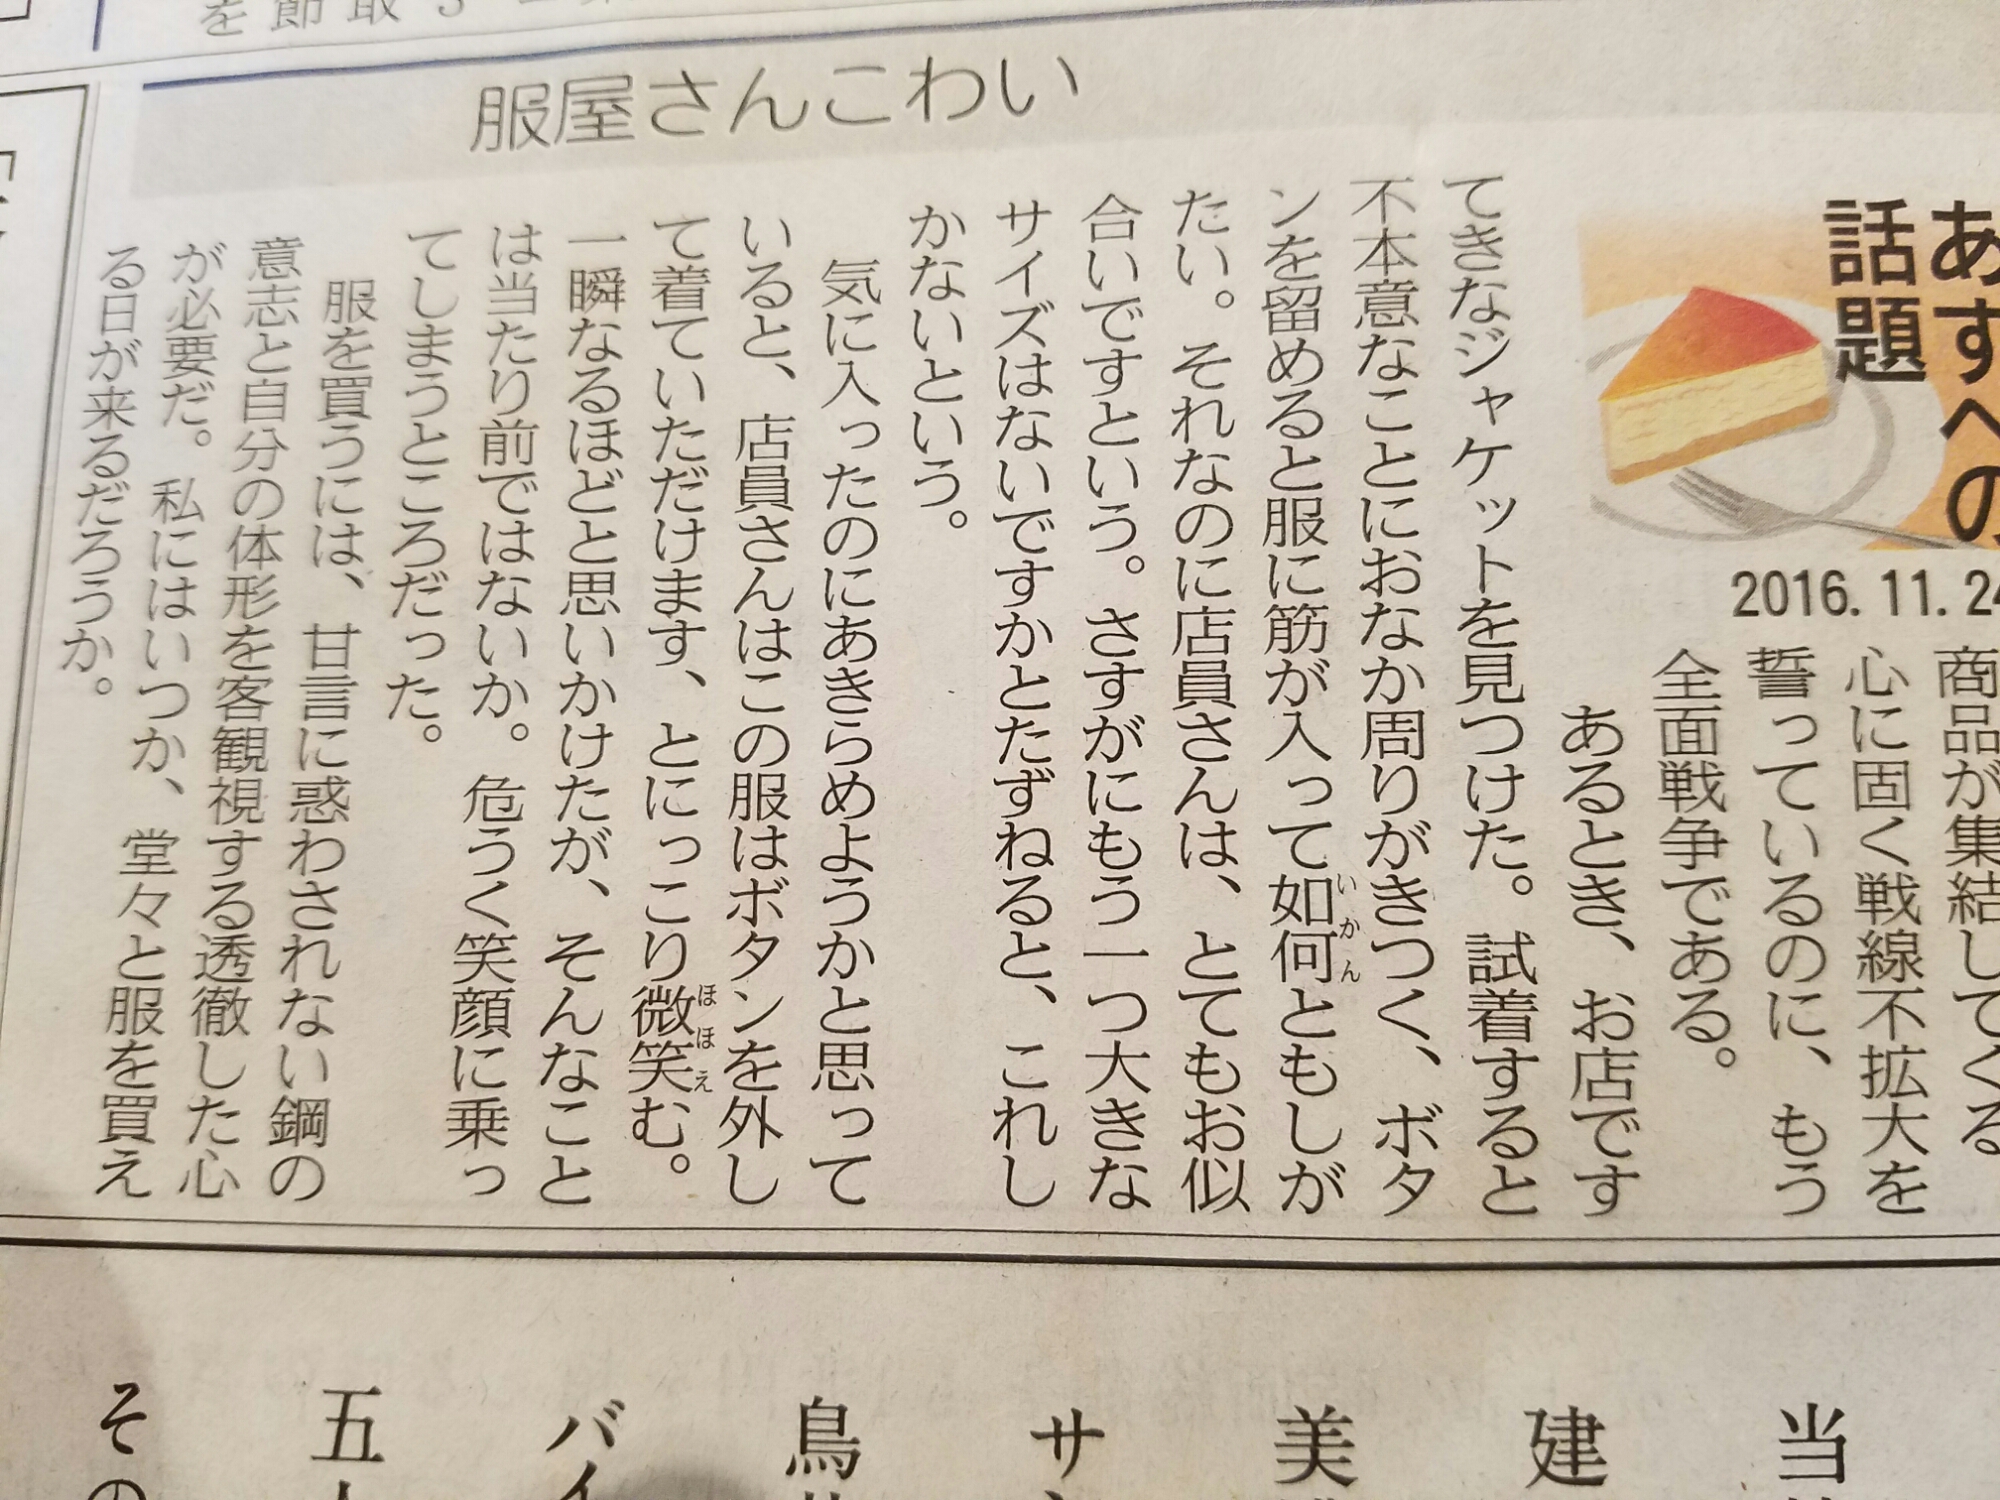 服屋さんこわい
あすへの
話題
2016.11.24
商品が集結してくる
心に固く戦線不拡大を
誓っているのに、もう
全面戦争である。
あるとき、お店です
てきなジャケットを見つけた。試着すると
不本意なことにおなか周りがきつく、ボタ
ンを留めると服に筋が入って如何ともしが
いかん
たい。それなのに店員さんは、とてもお似
合いですという。さすがにもう一つ大きな
サイズはないですかとたずねると、これし
かないという。
気に入ったのにあきらめようかと思って
いると、店員さんはこの服はボタンを外し
て着ていただけます、とにっこり微笑む。
ほほえ
一瞬なるほどと思いかけたが、そんなこと
は当たり前ではないか。危うく笑顔に乗っ
てしまうところだった。
服を買うには、甘言に惑わされない鋼の
意志と自分の体形を客観視する透徹した心
が必要だ。私にはいつか、堂々と服を買え
る日が来るだろうか。
当
建
美
サ
鳥
バイ
五
その